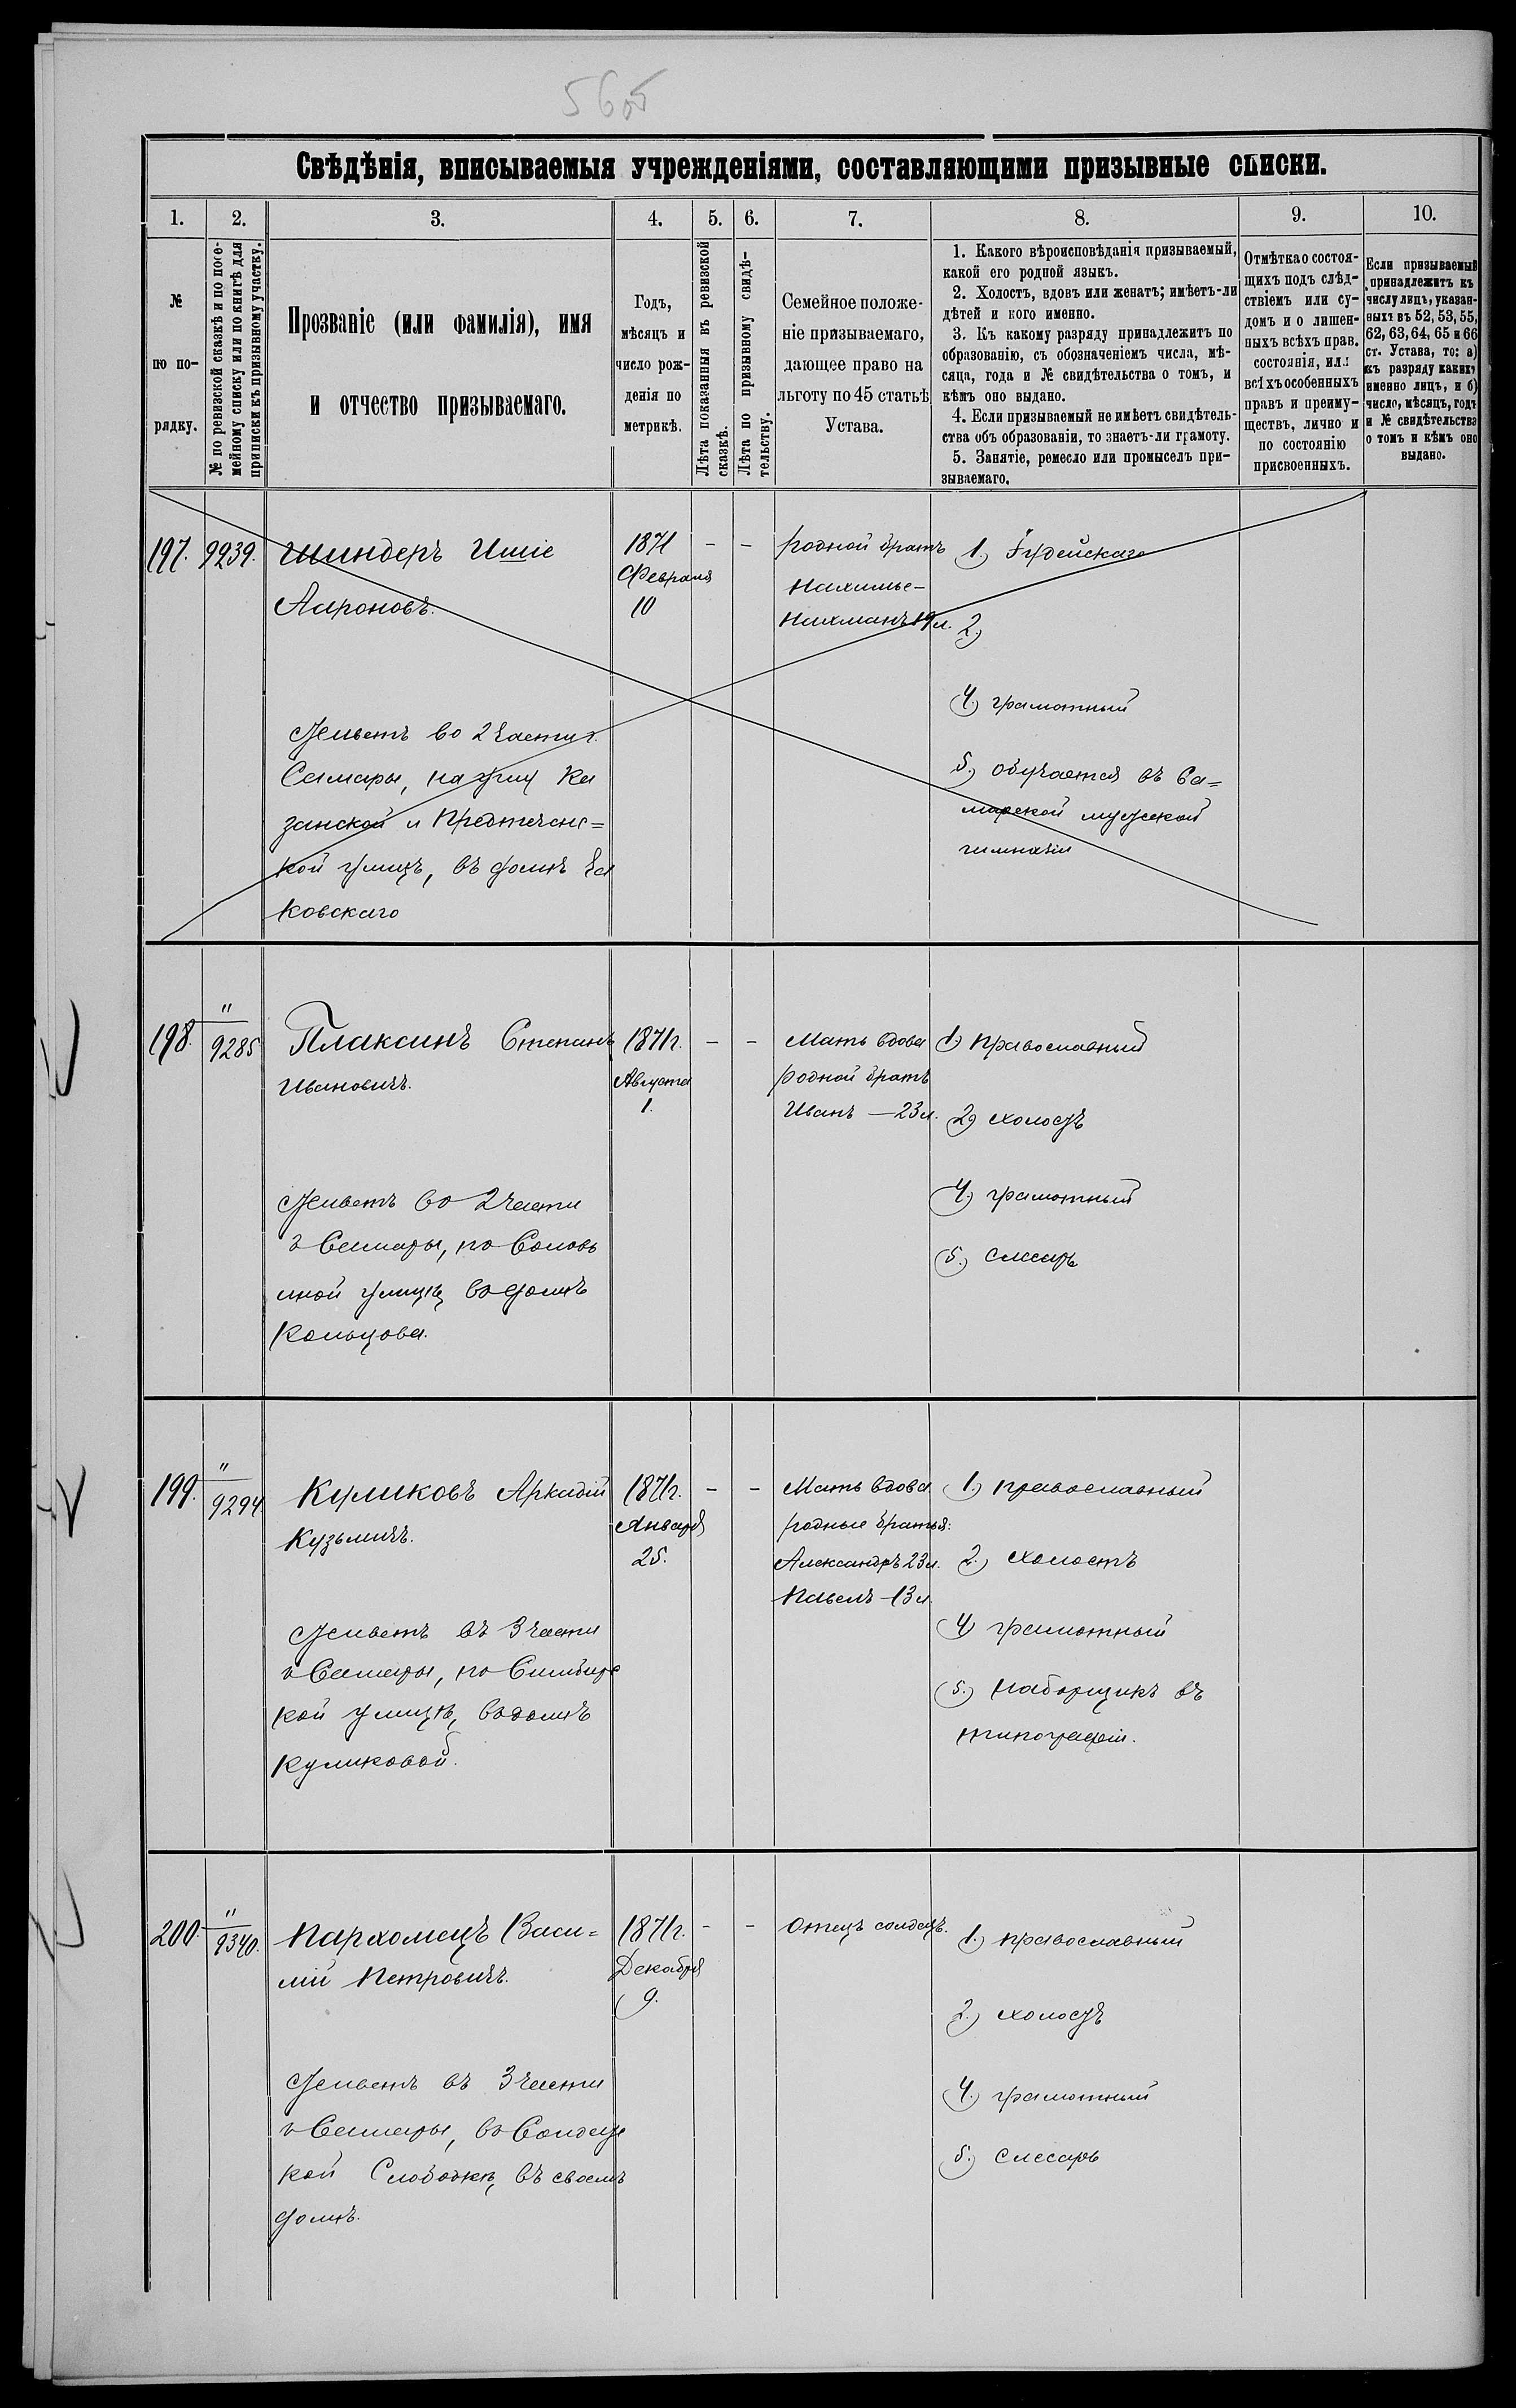 560б
Свѣдѣнія, вписываемыя учрежденіями, составляющими призывные списки.
1. 2. 3. 4. 5. 6. 7. 8. 9. 10.
№
по по-
рядку.
№ по ревизской сказкѣ и по посе-
мейному списку или по книгѣ для
приписки къ призывному участку.
Прозваніе (или фамилія), имя
и отчество призываемаго.
Годъ,
мѣсяцъ и
число рож-
денія по
метрикѣ.
Лѣта показанныя въ ревизской
сказкѣ.
Лѣта по призывному свидѣ-
тельству.
Семейное положе-
ніе призываемаго,
дающее право на
льготу по 45 статьѣ
Устава.
1. Какого вѣроисповѣданія призываемый,
какой его родной языкъ.
2. Холостъ, вдовъ или женатъ; имѣетъ-ли
дѣтей и кого именно.
3. Къ какому разряду принадлежитъ по
образованію, съ обозначеніемъ числа, мѣ-
сяца, года и № свидѣтельства о томъ, и
кѣмъ оно выдано.
4. Если призываемый не имѣетъ свидѣтель-
ства объ образованіи, то знаетъ-ли грамоту.
5. Занятіе, ремесло или промыселъ при-
зываемаго.
Отмѣтка о состоя-
щихъ подъ слѣд-
ствіемъ или су-
домъ и о лишен-
ныхъ всѣхъ прав.
состоянія, или
всѣхъ особенныхъ
правъ и преиму-
ществъ, лично и
по состоянію
присвоенныхъ.
Если призываемый
принадлежитъ къ
числу лицъ, указан-
ныхъ въ 52, 53, 55,
62, 63, 64, 65 и 66
ст. Устава, то: а)
къ разряду какихъ
именно лицъ, и б)
число, мѣсяцъ, годъ
и № свидѣтельства
о томъ и кѣмъ оно
выдано.
197. 9239. Шиндеръ Ишіе
Аароновъ.
1871
Февраля
10
- -
родной братъ
Нахимье-
Нахманъ 19 л.
1.) Іудейскаго
2.)
4.) грамотный
5.) обучается въ Са=
марской мужской
гимназіи
Живетъ во 2 части г.
Самары, на углу Ка
занской и Предтеченс=
кой улицъ, въ домѣ
ковскаго
198. " 9285 Плаксинъ Степанъ
Ивановичъ.
1871 г.
Августа
1.
- -
Мать вдова
родной братъ
Иванъ — 23 л.
1) православный
2) холостъ
4.) грамотный
5.) слесарь
Живетъ во 2 части
г Самары, по Соловь
иной улицѣ, въ домѣ
Кольцова.
199. " 9294 Куликовъ Аркадій
Кузьмичъ.
1871 г.
Января
25.
- -
Мать вдова
родные братья:
Александръ 23 л.
Павелъ - 13 л.
1.) православный
2.) холостъ
4) грамотный
5.) наборщикъ въ
типографіи.
Живетъ въ 3 части
г Самары, по Симбирс
кой улицѣ, въ домѣ
Куликовой.
200. " 9340. Пархомецъ Васи=
лій Петровичъ.
1871 г.
Декабря
9.
- -
Отецъ солдатъ.
1.) православный
2.) холостъ
4.) грамотный
5.) слесарь
Живетъ въ 3 части
г Самары, въ Солдатс
кой Слободкѣ, въ своемъ
домѣ.